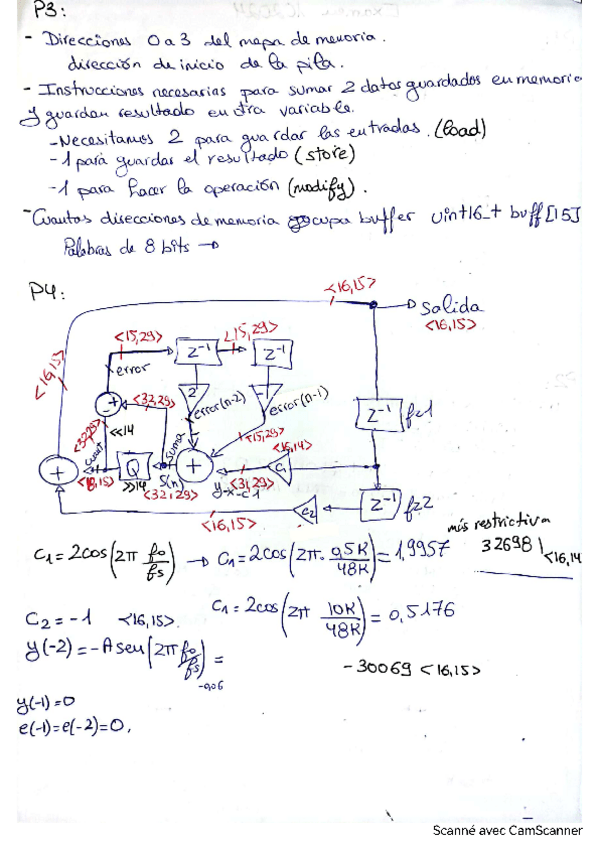 P3:
- Direcciones 0 a 3 del mapa de memoria.
dirección de inicio de la pila.
- Instrucciones necesarias para sumar 2 datos guardados en memoria
y guardar resultado en otra variable.
- Necesitamos 2 para guardar las entradas. (load)
- 1 para guardar el resultado (store)
- 1 para hacer la operación (modify).
- Cuantas direcciones de memoria ocupa buffer uint16_t buff[15]
Palabras de 8 bits →
P4:
<16,15>
salida
<16,15>
<15,29>
<15,29>
z⁻¹
z⁻¹
error
<16,15>
<32,29>
2
-1
error(n-2)
error(n-1)
z⁻¹
fz1
<32,29>
<<14
suma
<15,29>
<16,14>
cuant
+
Q
S(n)
+
C1
<16,15>
>>14
<32,29>
y-x-c1
<31,29>
C2
z⁻¹
fz2
<16,15>
C1 = 2cos(2π fo/fs) → C1 = 2cos(2π · 0,5K/48K) = 1,9957
más restrictiva
32698 <16,14
C2 = -1 <16,15>.
C1 = 2cos(2π 10K/48K) = 0,5176
y(-2) = -A sen(2π fo/fs) =
-0,06
-30069 <16,15>
y(-1) = 0
e(-1) = e(-2) = 0,
Scanné avec CamScanner